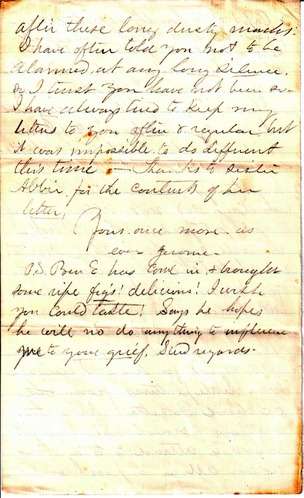 after these long dusty marches.
I have often told you not to be
alarmed at any long silence.
& I trust you have not been so.
I have always tried to keep my
letters to you often & regular, but
it was impossible to do different
this time. – Thanks to sister
Abbie for the contents of her
letter,
Yours once more as
ever
P.S. E. has come in & brought
some ripe figs! delicious! I wish
you could taste! Says he hopes
he will no do anything to influence
me to your grief. Send regards.